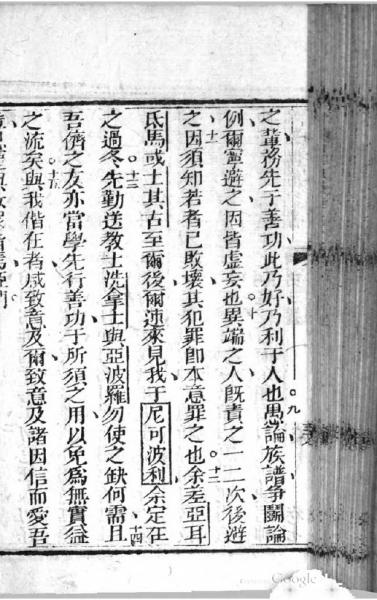 之輩務先于善功此乃好乃利于人也。九愚論族譜爭鬭論
例爾寧避之因皆虛妄也。十異端之人既責之一二次後避
之。十一因須知若者已敗壞其犯罪卽本意罪之也。十二余差亞耳
氐馬或士其古至爾後爾速來見我于尼可波利余定在
之過冬。十三先勤送教士洗拿士與亞波羅勿使之缺何需且。十四
吾儕之友亦當學先行善功于所須之用以免為無實益
之流矣。十五與我偕在者咸致意及爾致意及諸因信而愛吾
Google